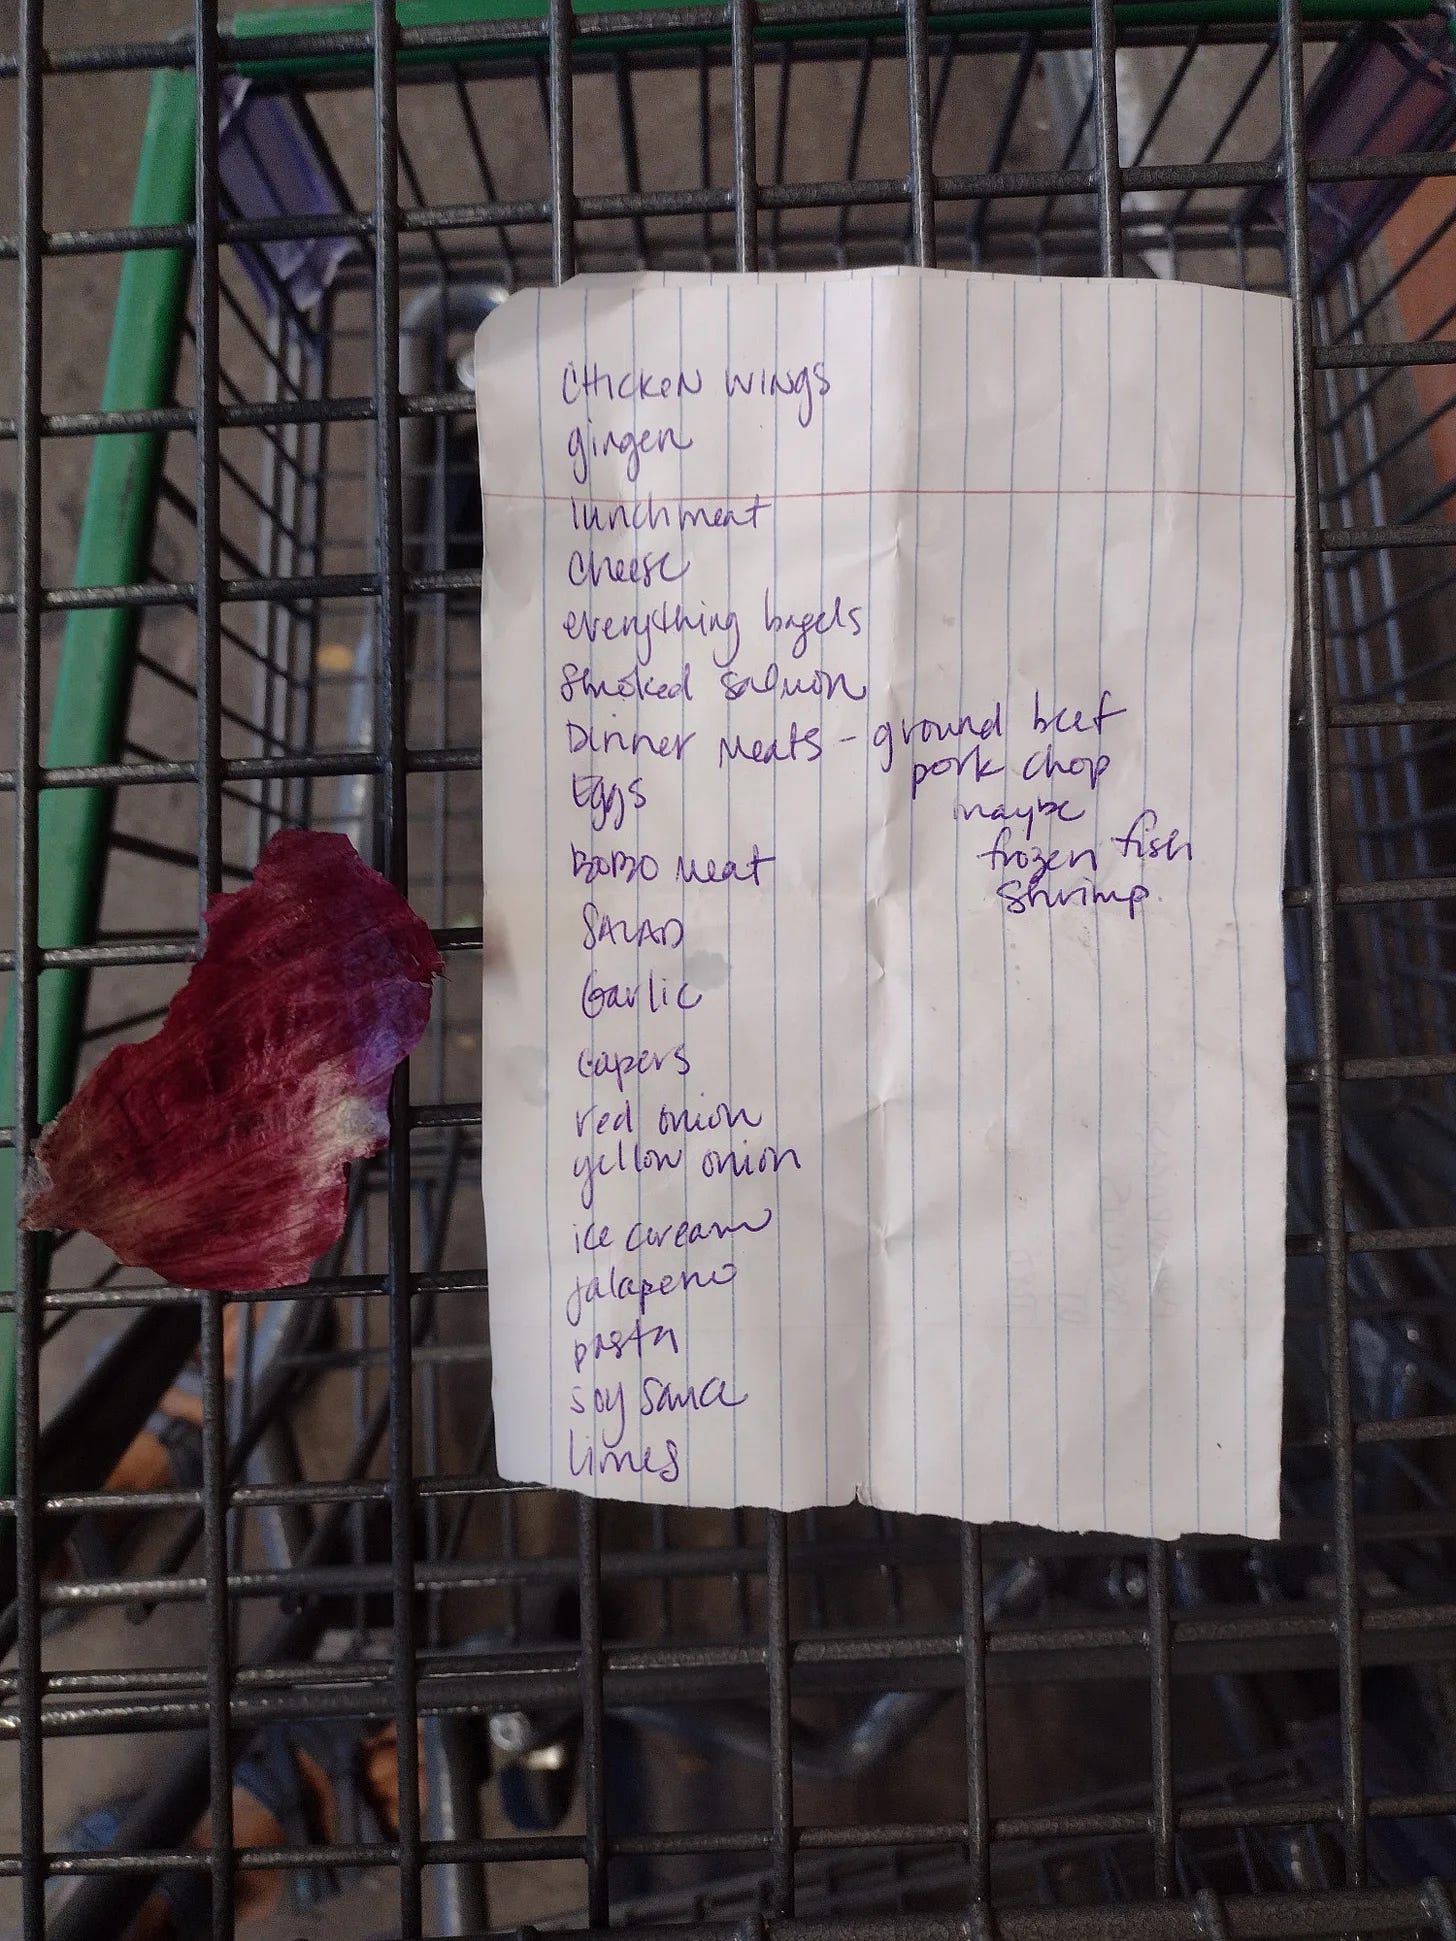 CHICKEN WINGS
ginger
lunchmeat
cheese
everything bagels
Smoked salmon
Dinner Meats - ground beef
pork chop
maybe
frozen fish
Shrimp
Eggs
BOBO Meat
SALAD
Garlic
capers
red onion
yellow onion
ice cream
jalapeno
pasta
soy sauce
limes